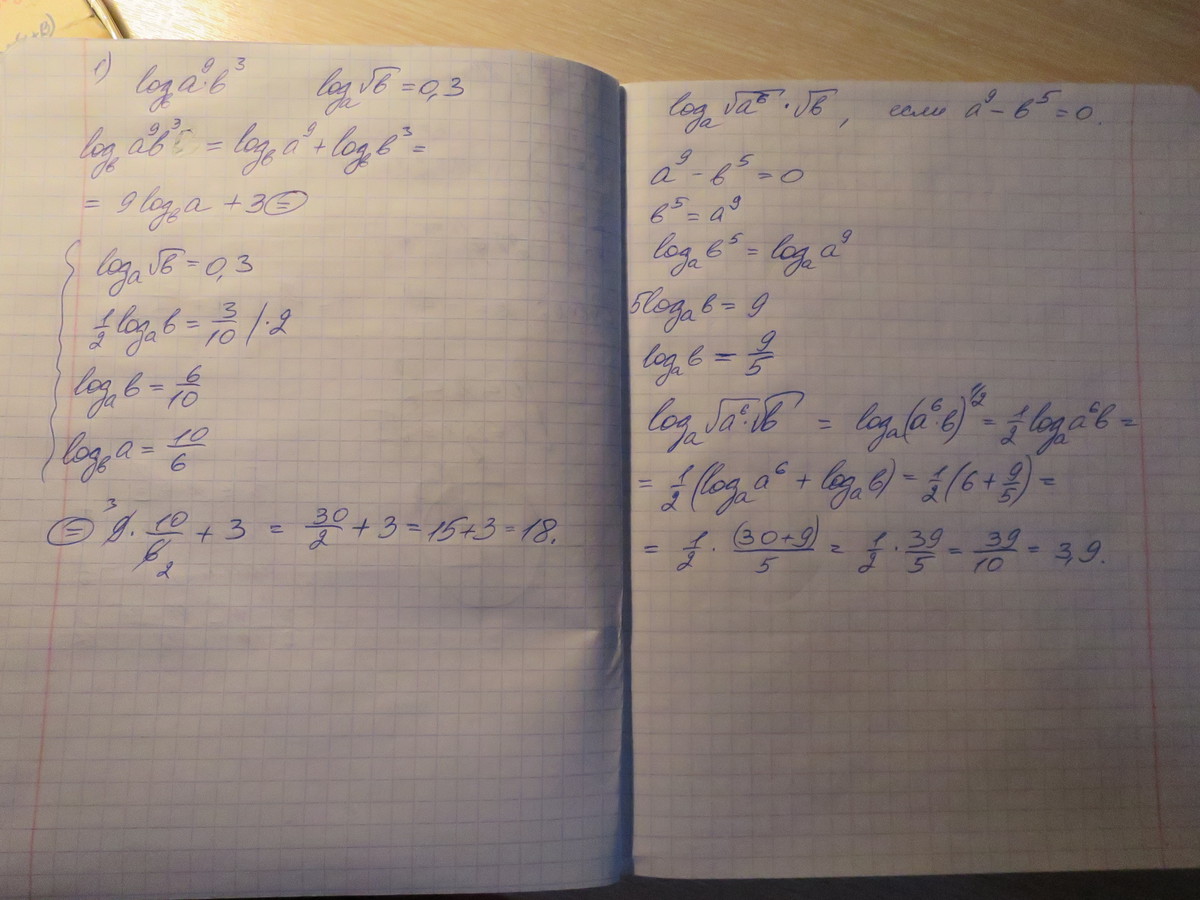 1) log_в a⁹·в³ log_a √в = 0,3
log_в a⁹в³ = log_в a⁹ + log_в в³ =
= 9 log_в a + 3 ⊜
log_a √в = 0,3
1/2 log_a в = 3/10 /·2
log_a в = 6/10
log_в a = 10/6
⊜ 9³ · 10/6₂ + 3 = 30/2 + 3 = 15+3 = 18.
log_a √a⁶ · √в, если a⁹ - в⁵ = 0.
a⁹ - в⁵ = 0
в⁵ = a⁹
log_a в⁵ = log_a a⁹
5log_a в = 9
log_a в = 9/5
log_a √a⁶·√в = log_a (a⁶·в)^1/2 = 1/2 log_a a⁶в =
= 1/2 (log_a a⁶ + log_a в) = 1/2 (6 + 9/5) =
= 1/2 · (30+9)/5 = 1/2 · 39/5 = 39/10 = 3,9.